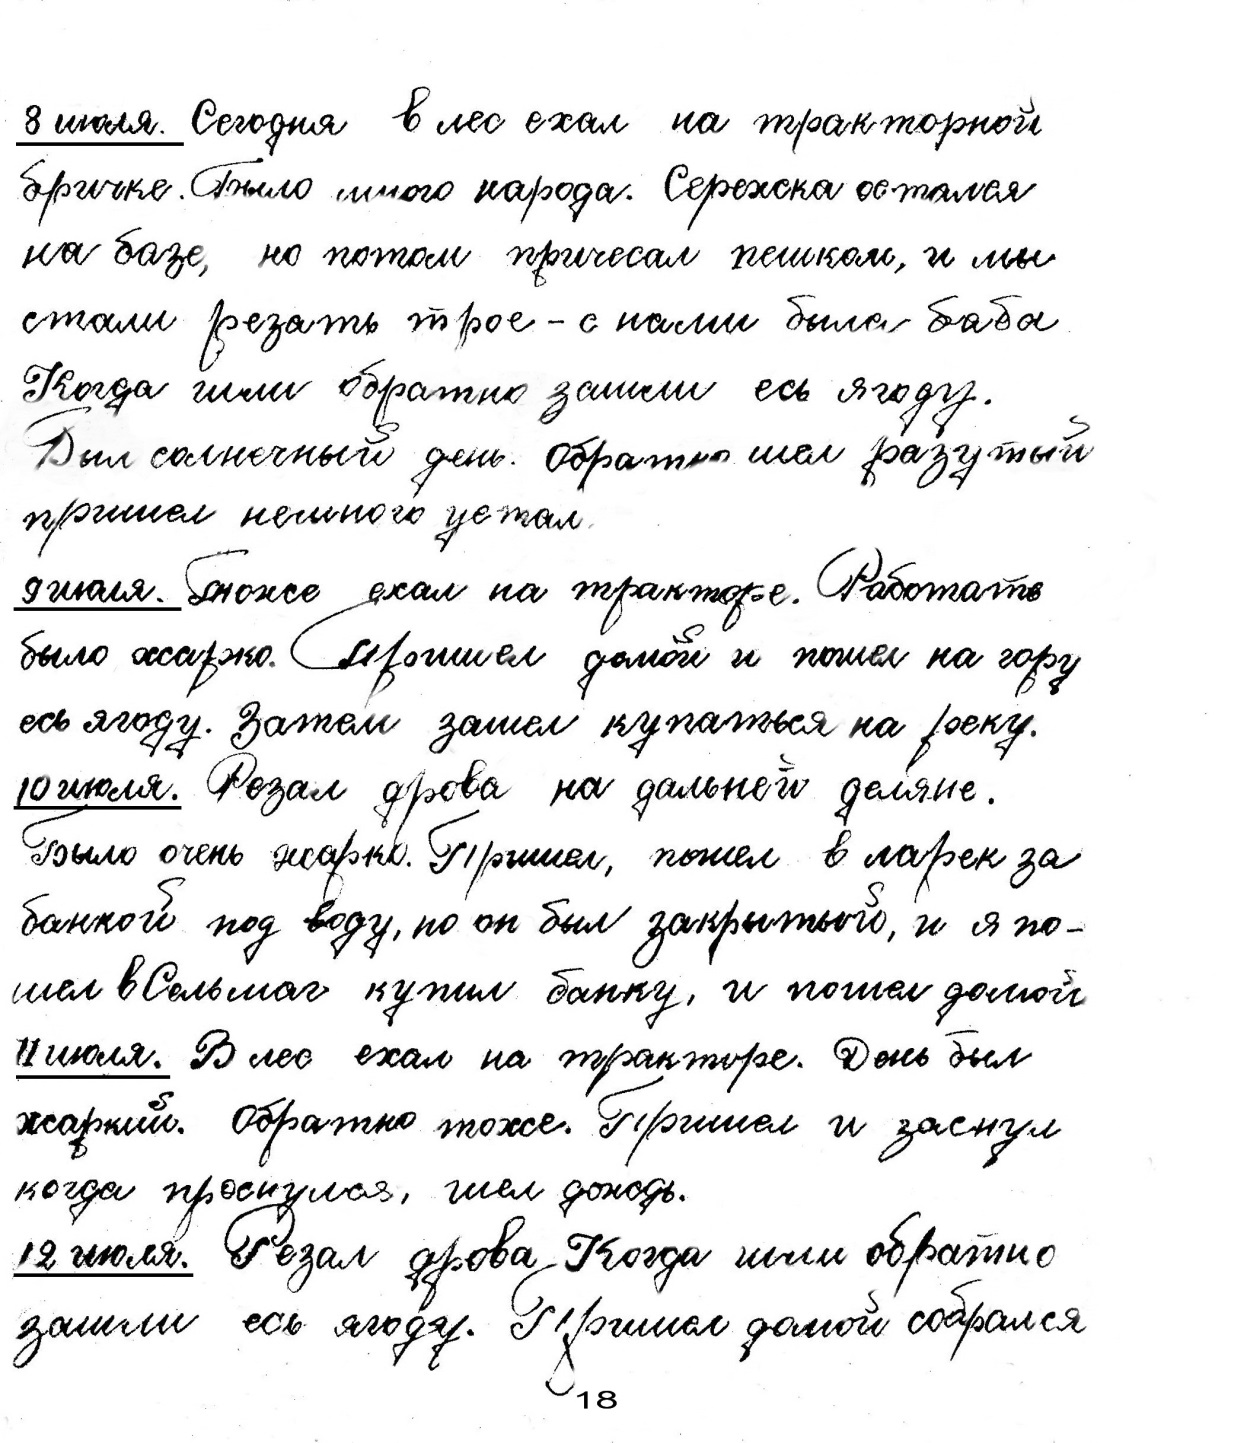 8 июля. Сегодня в лес ехал на тракторной
бричке. Было много народа. Сережка остался
на базе, но потом причесал пешком, и мы
стали резать трое - с нами была баба
Когда шли обратно зашли есь ягоду.
Был солнечный день. Обратно шел разутый
пришел немного устал.
9 июля. Тоже ехал на тракторе. Работать
было жарко. Пришел домой и пошел на гору
есь ягоду. Затем зашел купаться на реку.
10 июля. Резал дрова на дальней деляне.
Было очень жарко. Пришел, пошел в ларек за
банкой под воду, но он был закрытый, и я по-
шел в Сельмаг купил банку, и пошел домой
11 июля. В лес ехал на тракторе. День был
жаркий. Обратно тоже. Пришел и заснул
когда проснулся, шел дождь.
12 июля. Резал дрова Когда шли обратно
зашли есь ягоду. Пришел домой собрался
18